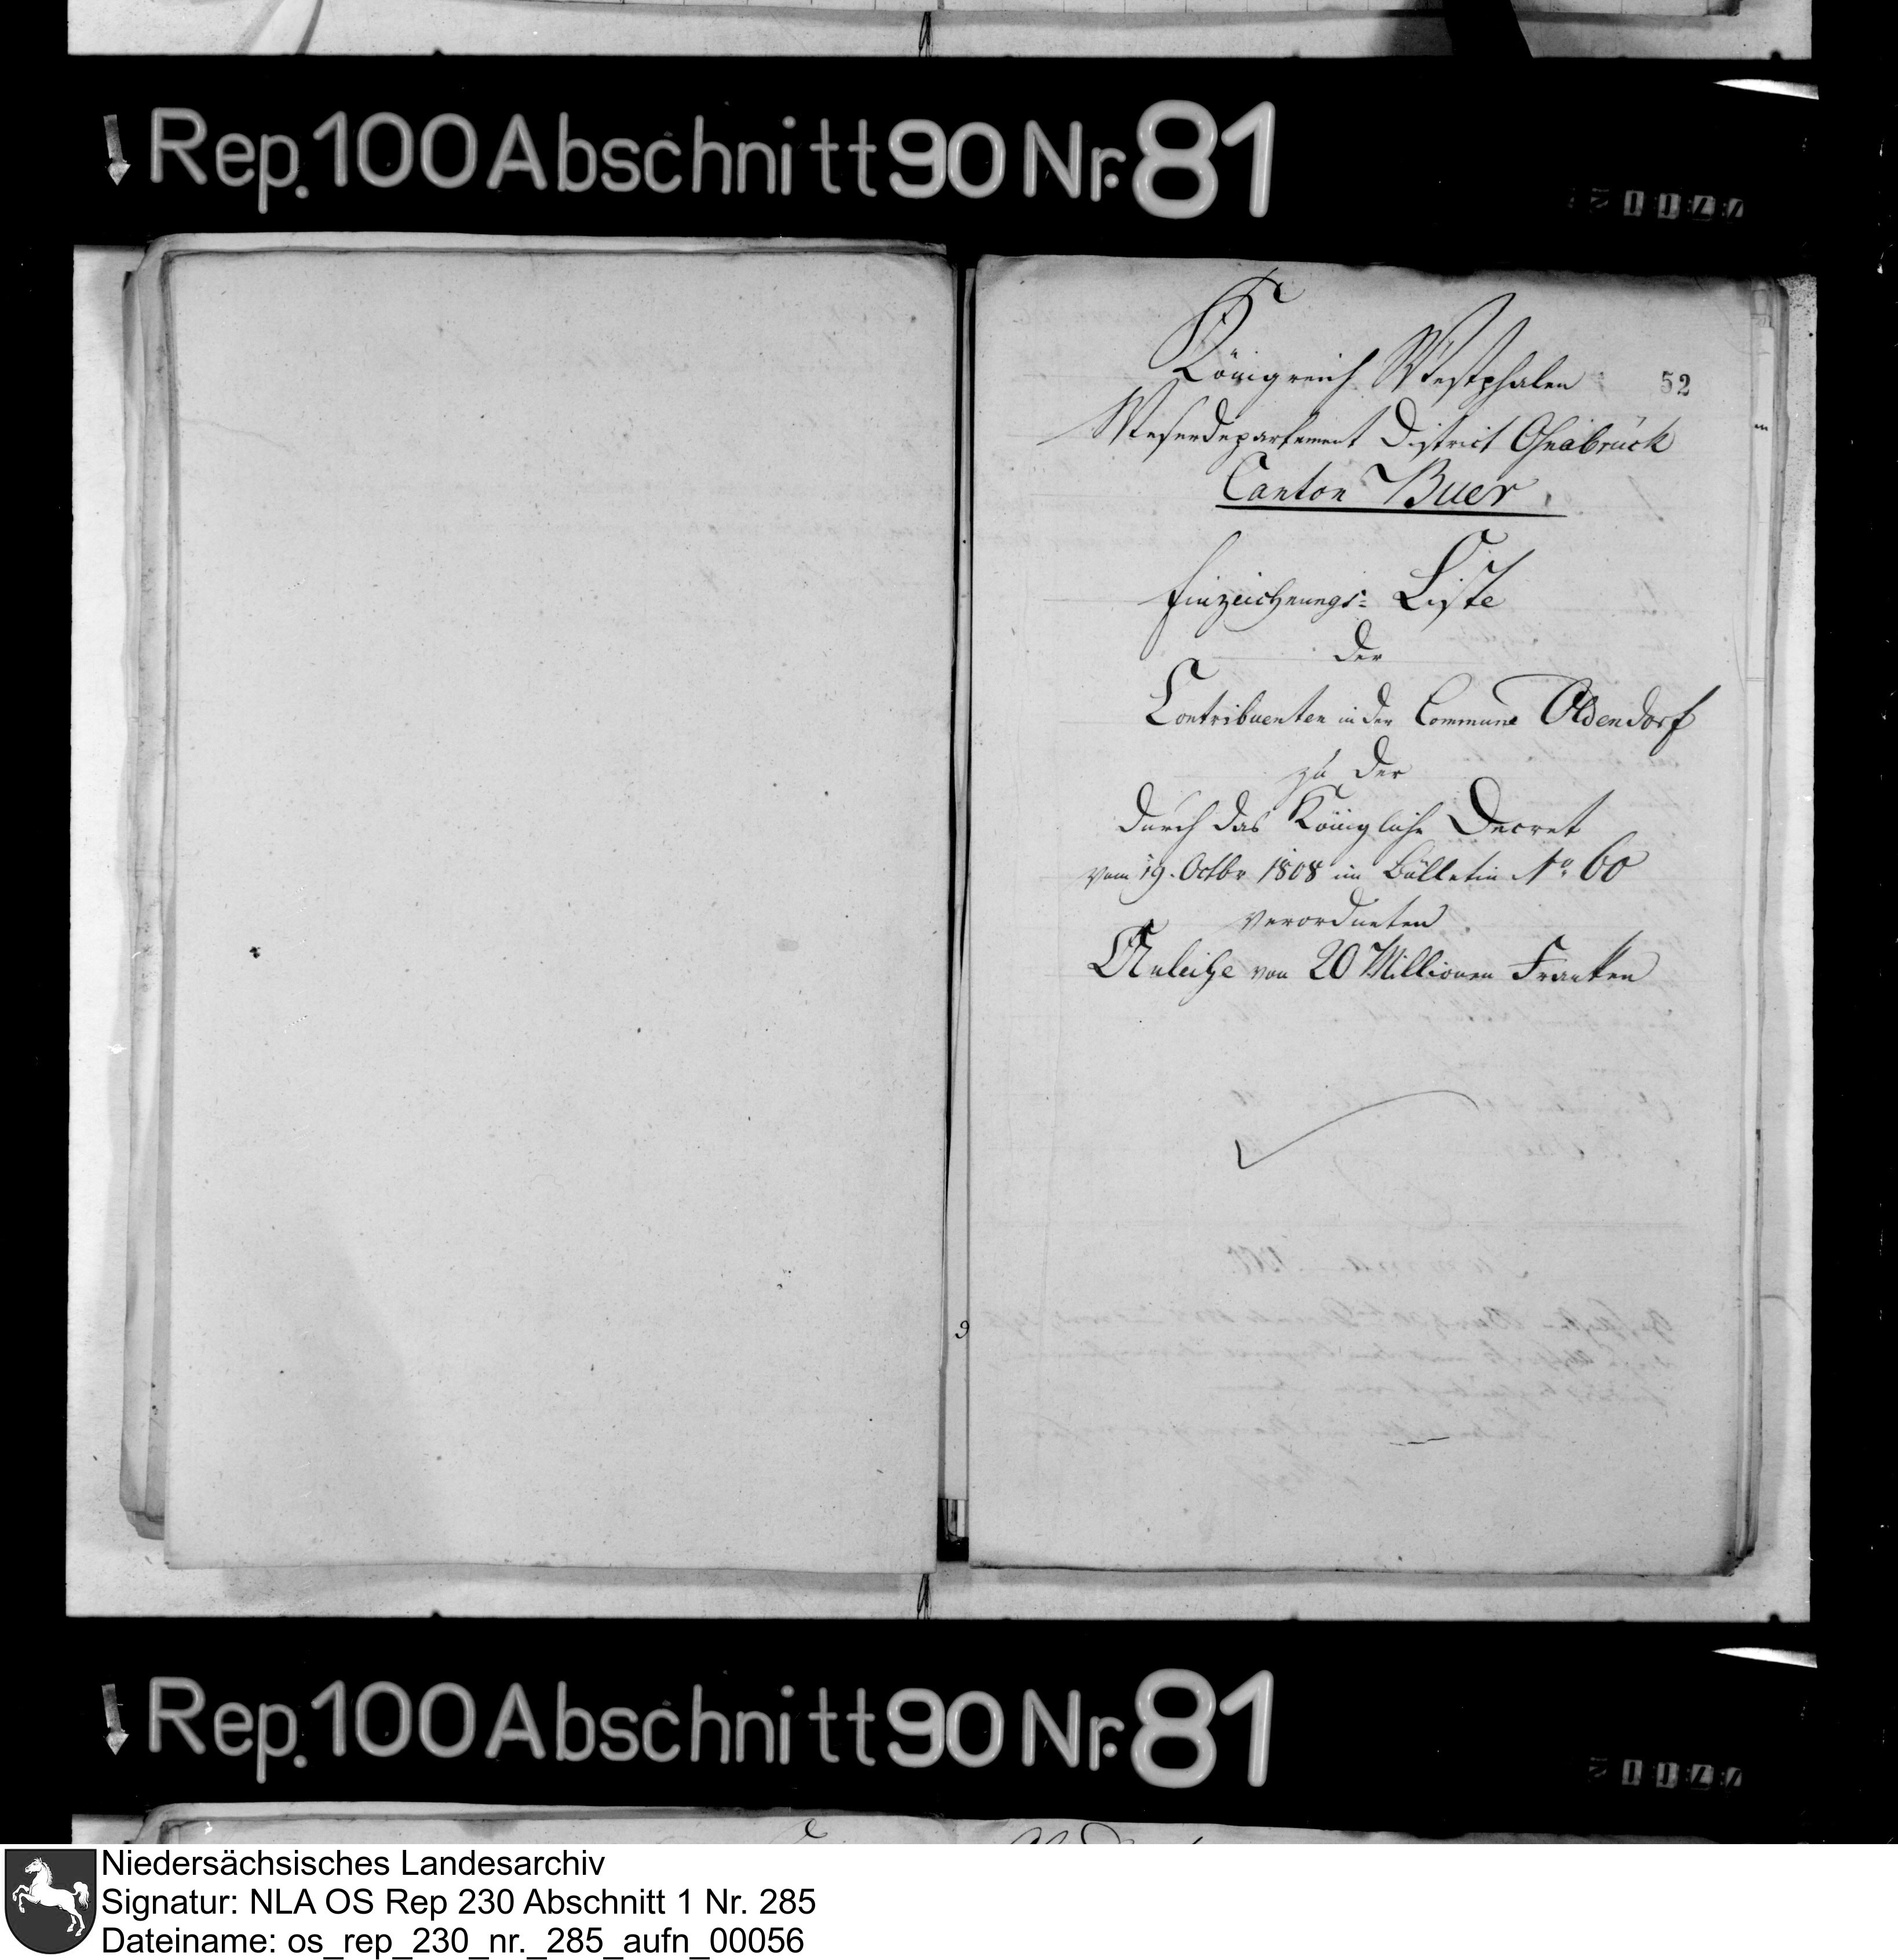 Rep. 100 Abschnitt 90 Nr. 81
Königreich Westphalen
52
Weserdepartement District Osnabrück
Canton Buer.
Einzeichnungs= Liste
der
Contribuenten in der Commune Oldendorf
zu der
durch das Königliche Decret
vom 19. Octbr 1808 im Bülletin No. 60
verordneten
Anleihe von 20 Millionen Franken
Rep. 100 Abschnitt 90 Nr. 81
Niedersächsisches Landesarchiv
Signatur: NLA OS Rep 230 Abschnitt 1 Nr. 285
Dateiname: os_rep_230_nr._285_aufn_00056